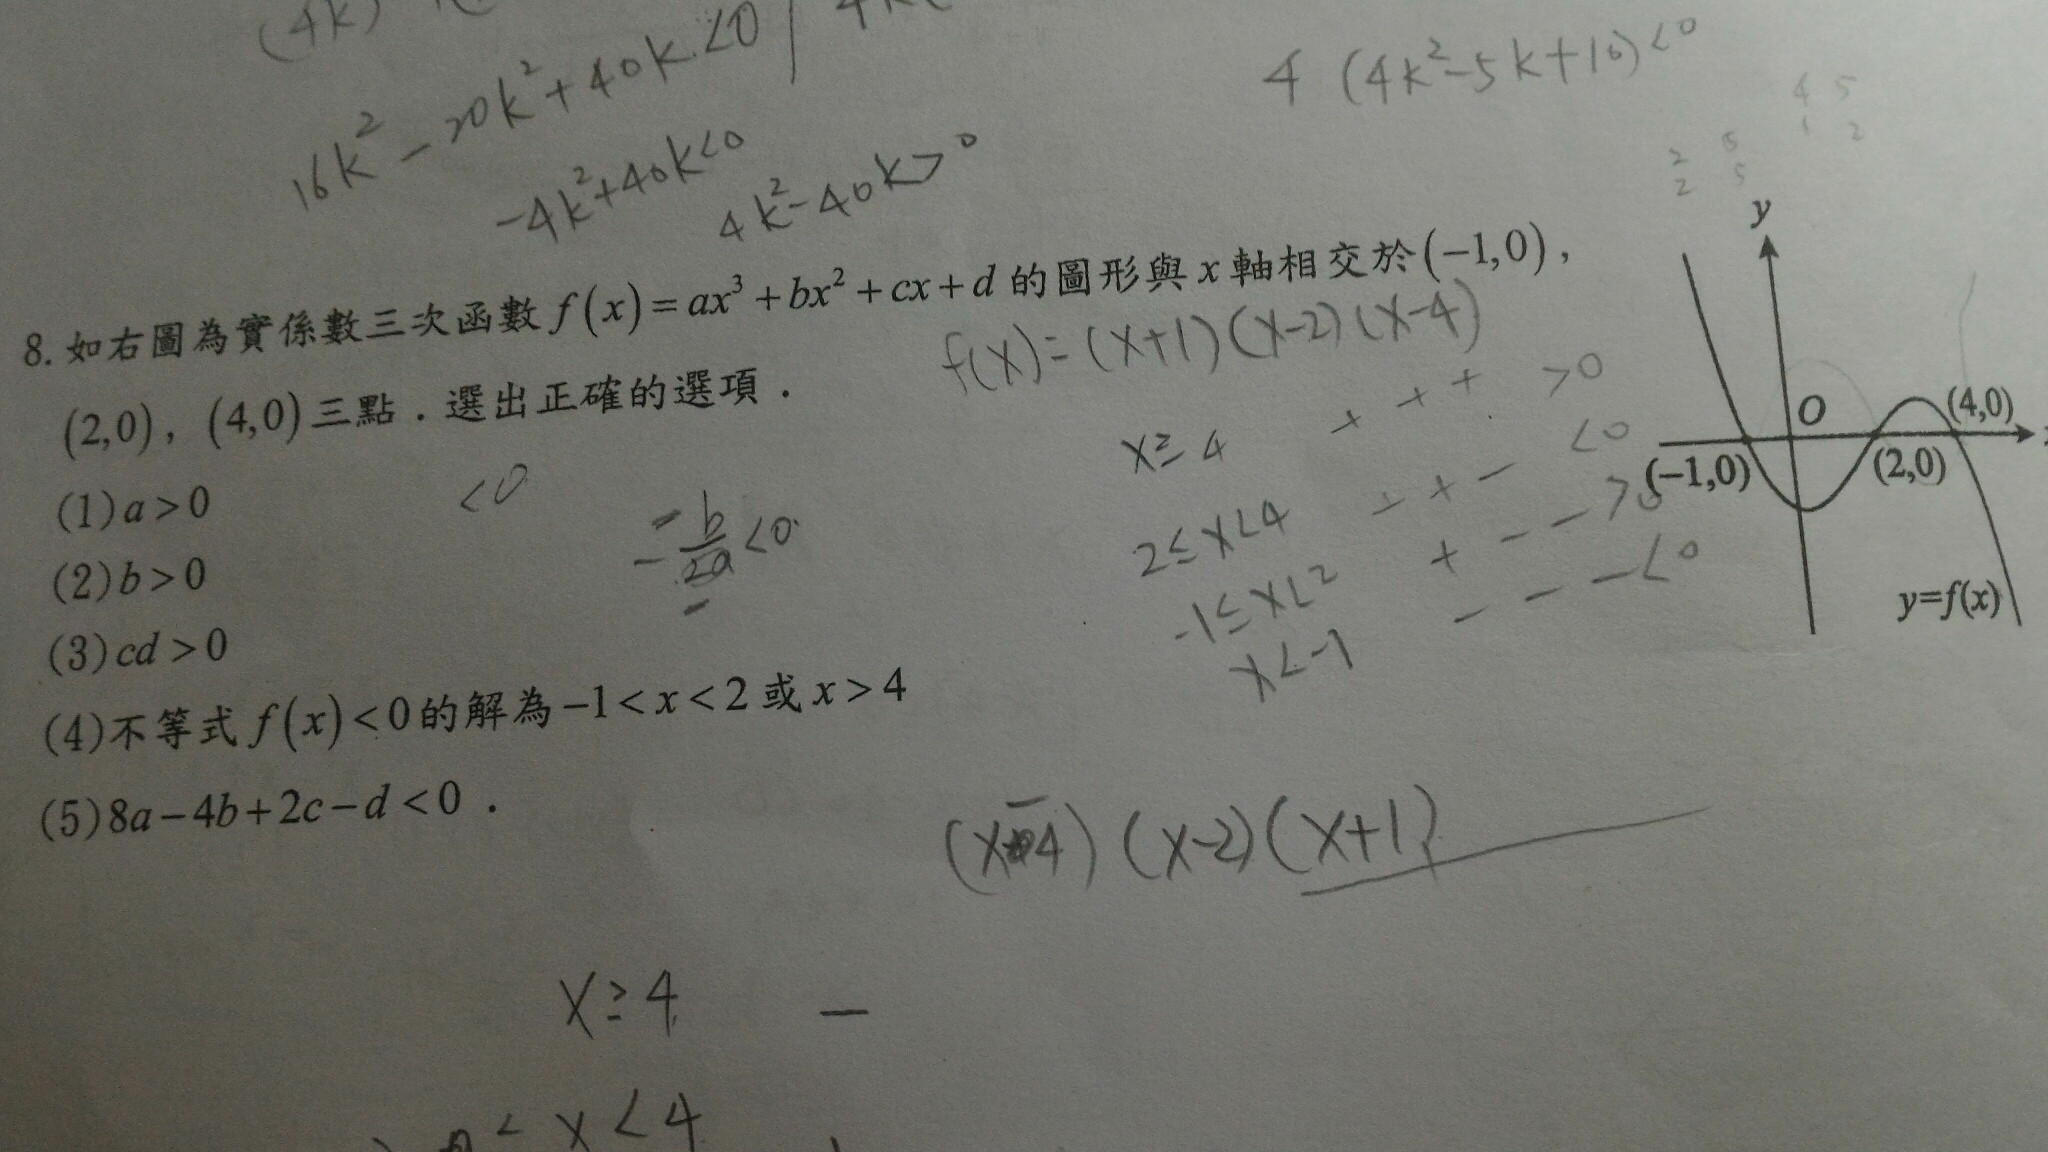 (4k)
16k² - 20k² + 40k < 0
-4k² + 40k < 0
4k² - 40k > 0
4 (4k² - 5k + 10) < 0
4 5
1 2
2 5
2 5
8. 如右圖為實係數三次函數 f(x) = ax³ + bx² + cx + d 的圖形與 x 軸相交於 (-1,0)，
(2,0)，(4,0) 三點．選出正確的選項．
f(x) = (x+1)(x-2)(x-4)
(1) a > 0
<0
(2) b > 0
-b/2a < 0
(3) cd > 0
(4) 不等式 f(x) < 0 的解為 -1 < x < 2 或 x > 4
(5) 8a - 4b + 2c - d < 0．
x ≥ 4 + + + > 0
2 ≤ x < 4 + + - < 0
-1 ≤ x < 2 + - - > 0
x < -1 - - - < 0
y
O
(4,0)
(-1,0)
(2,0)
y=f(x)
(x-4)(x-2)(x+1)
x ≥ 4 -
< x < 4